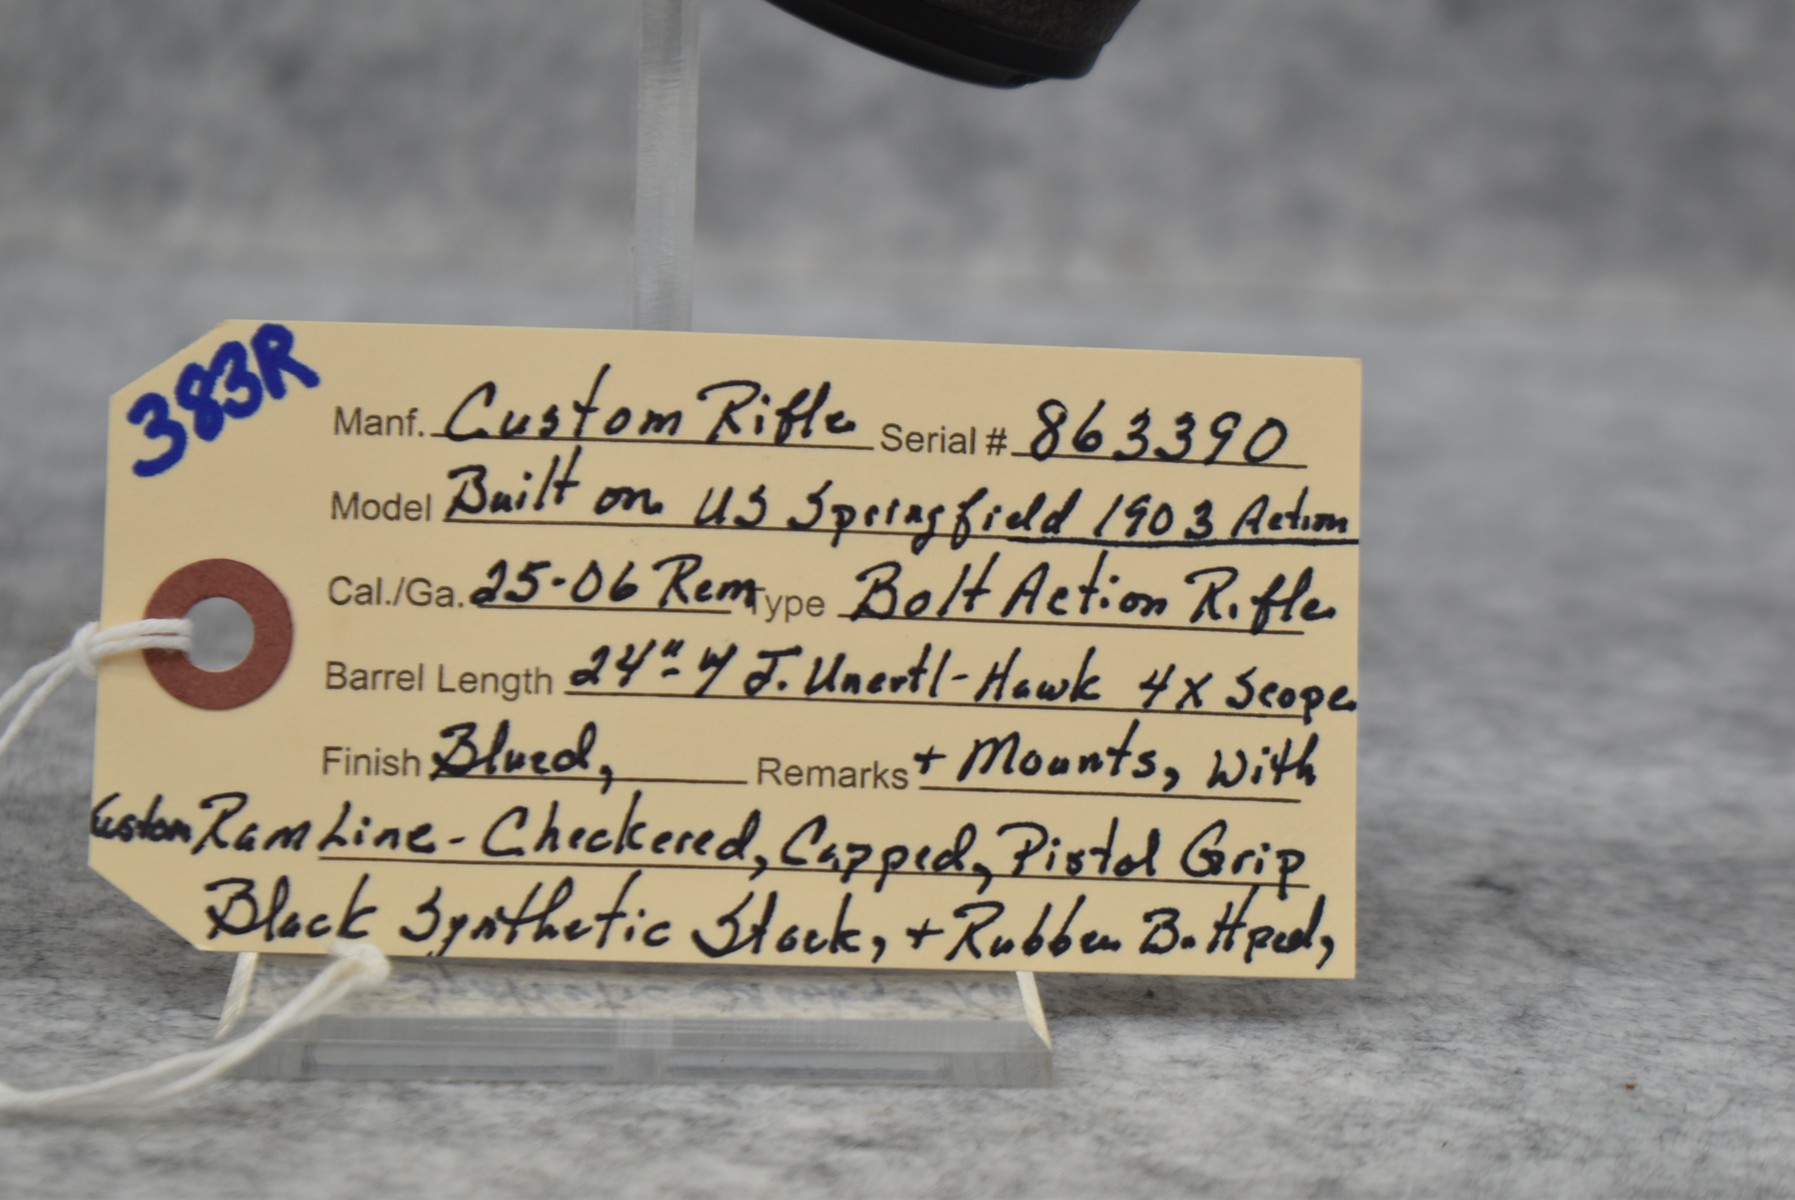 383R
Manf. Custom Rifle Serial # 863390
Model Built on US Springfield 1903 Action
Cal./Ga. 25-06 Rem Type Bolt Action Rifle
Barrel Length 24"- w/ J. Unertl-Hawk 4X Scope
Finish Blued, Remarks + Mounts, With
Custom Ram Line - Checkered, Capped, Pistol Grip
Black Synthetic Stock, + Rubber Buttpad,